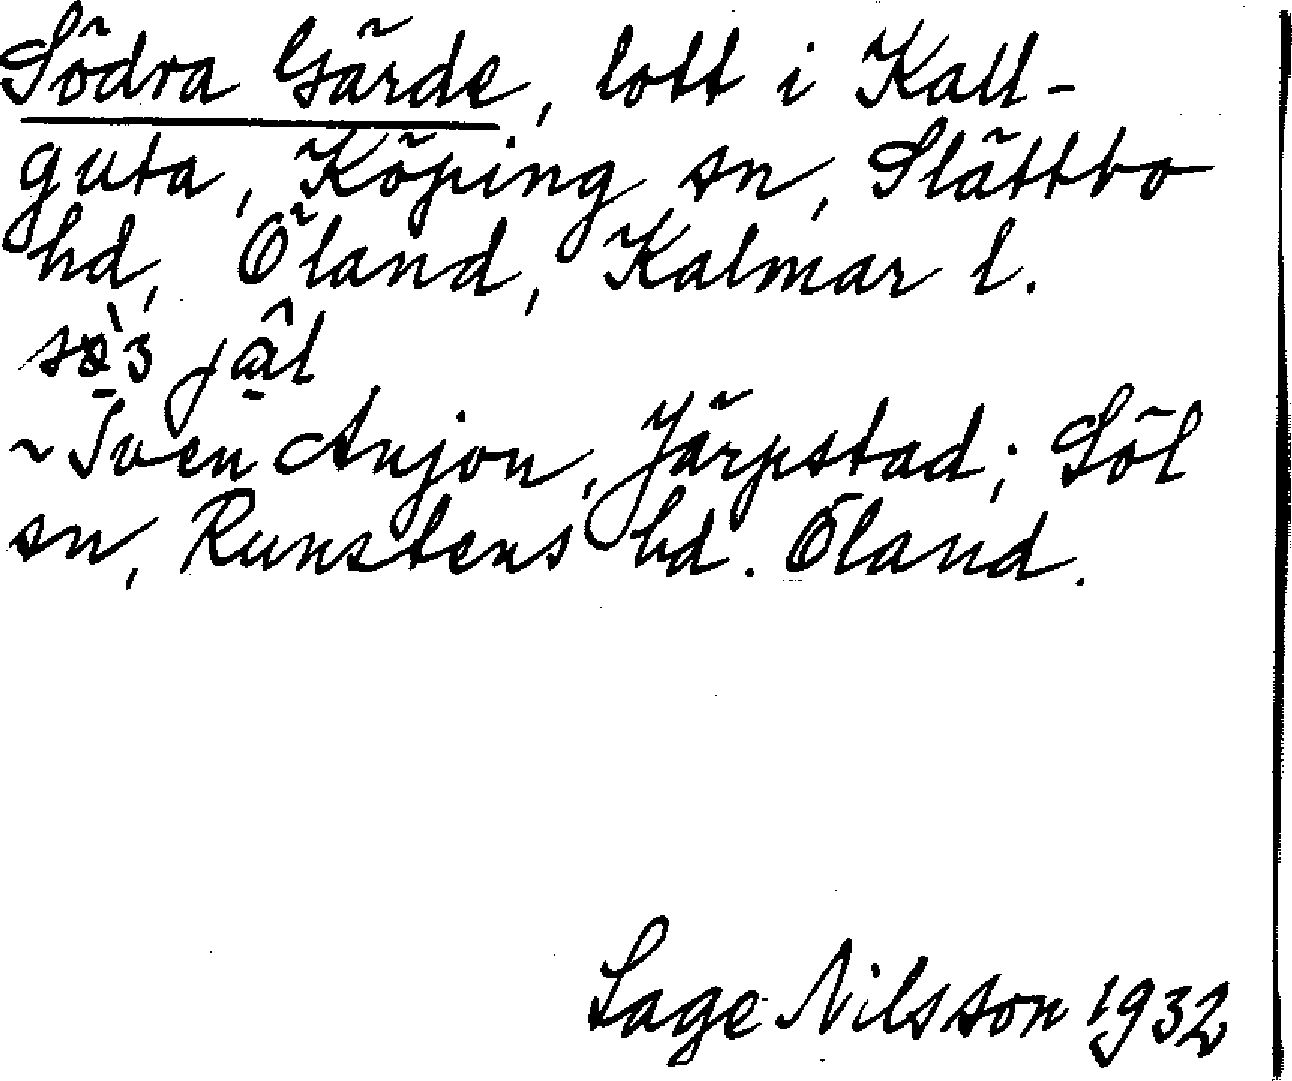 Södra Gärde, lott i Kall-
guta, Köping sn, Slättbo
hd, Öland, Kalmar l.
~ Sven Anjon, Järpstad; Söl
sn, Runstens hd. Öland.
Sage Nilsson 1932